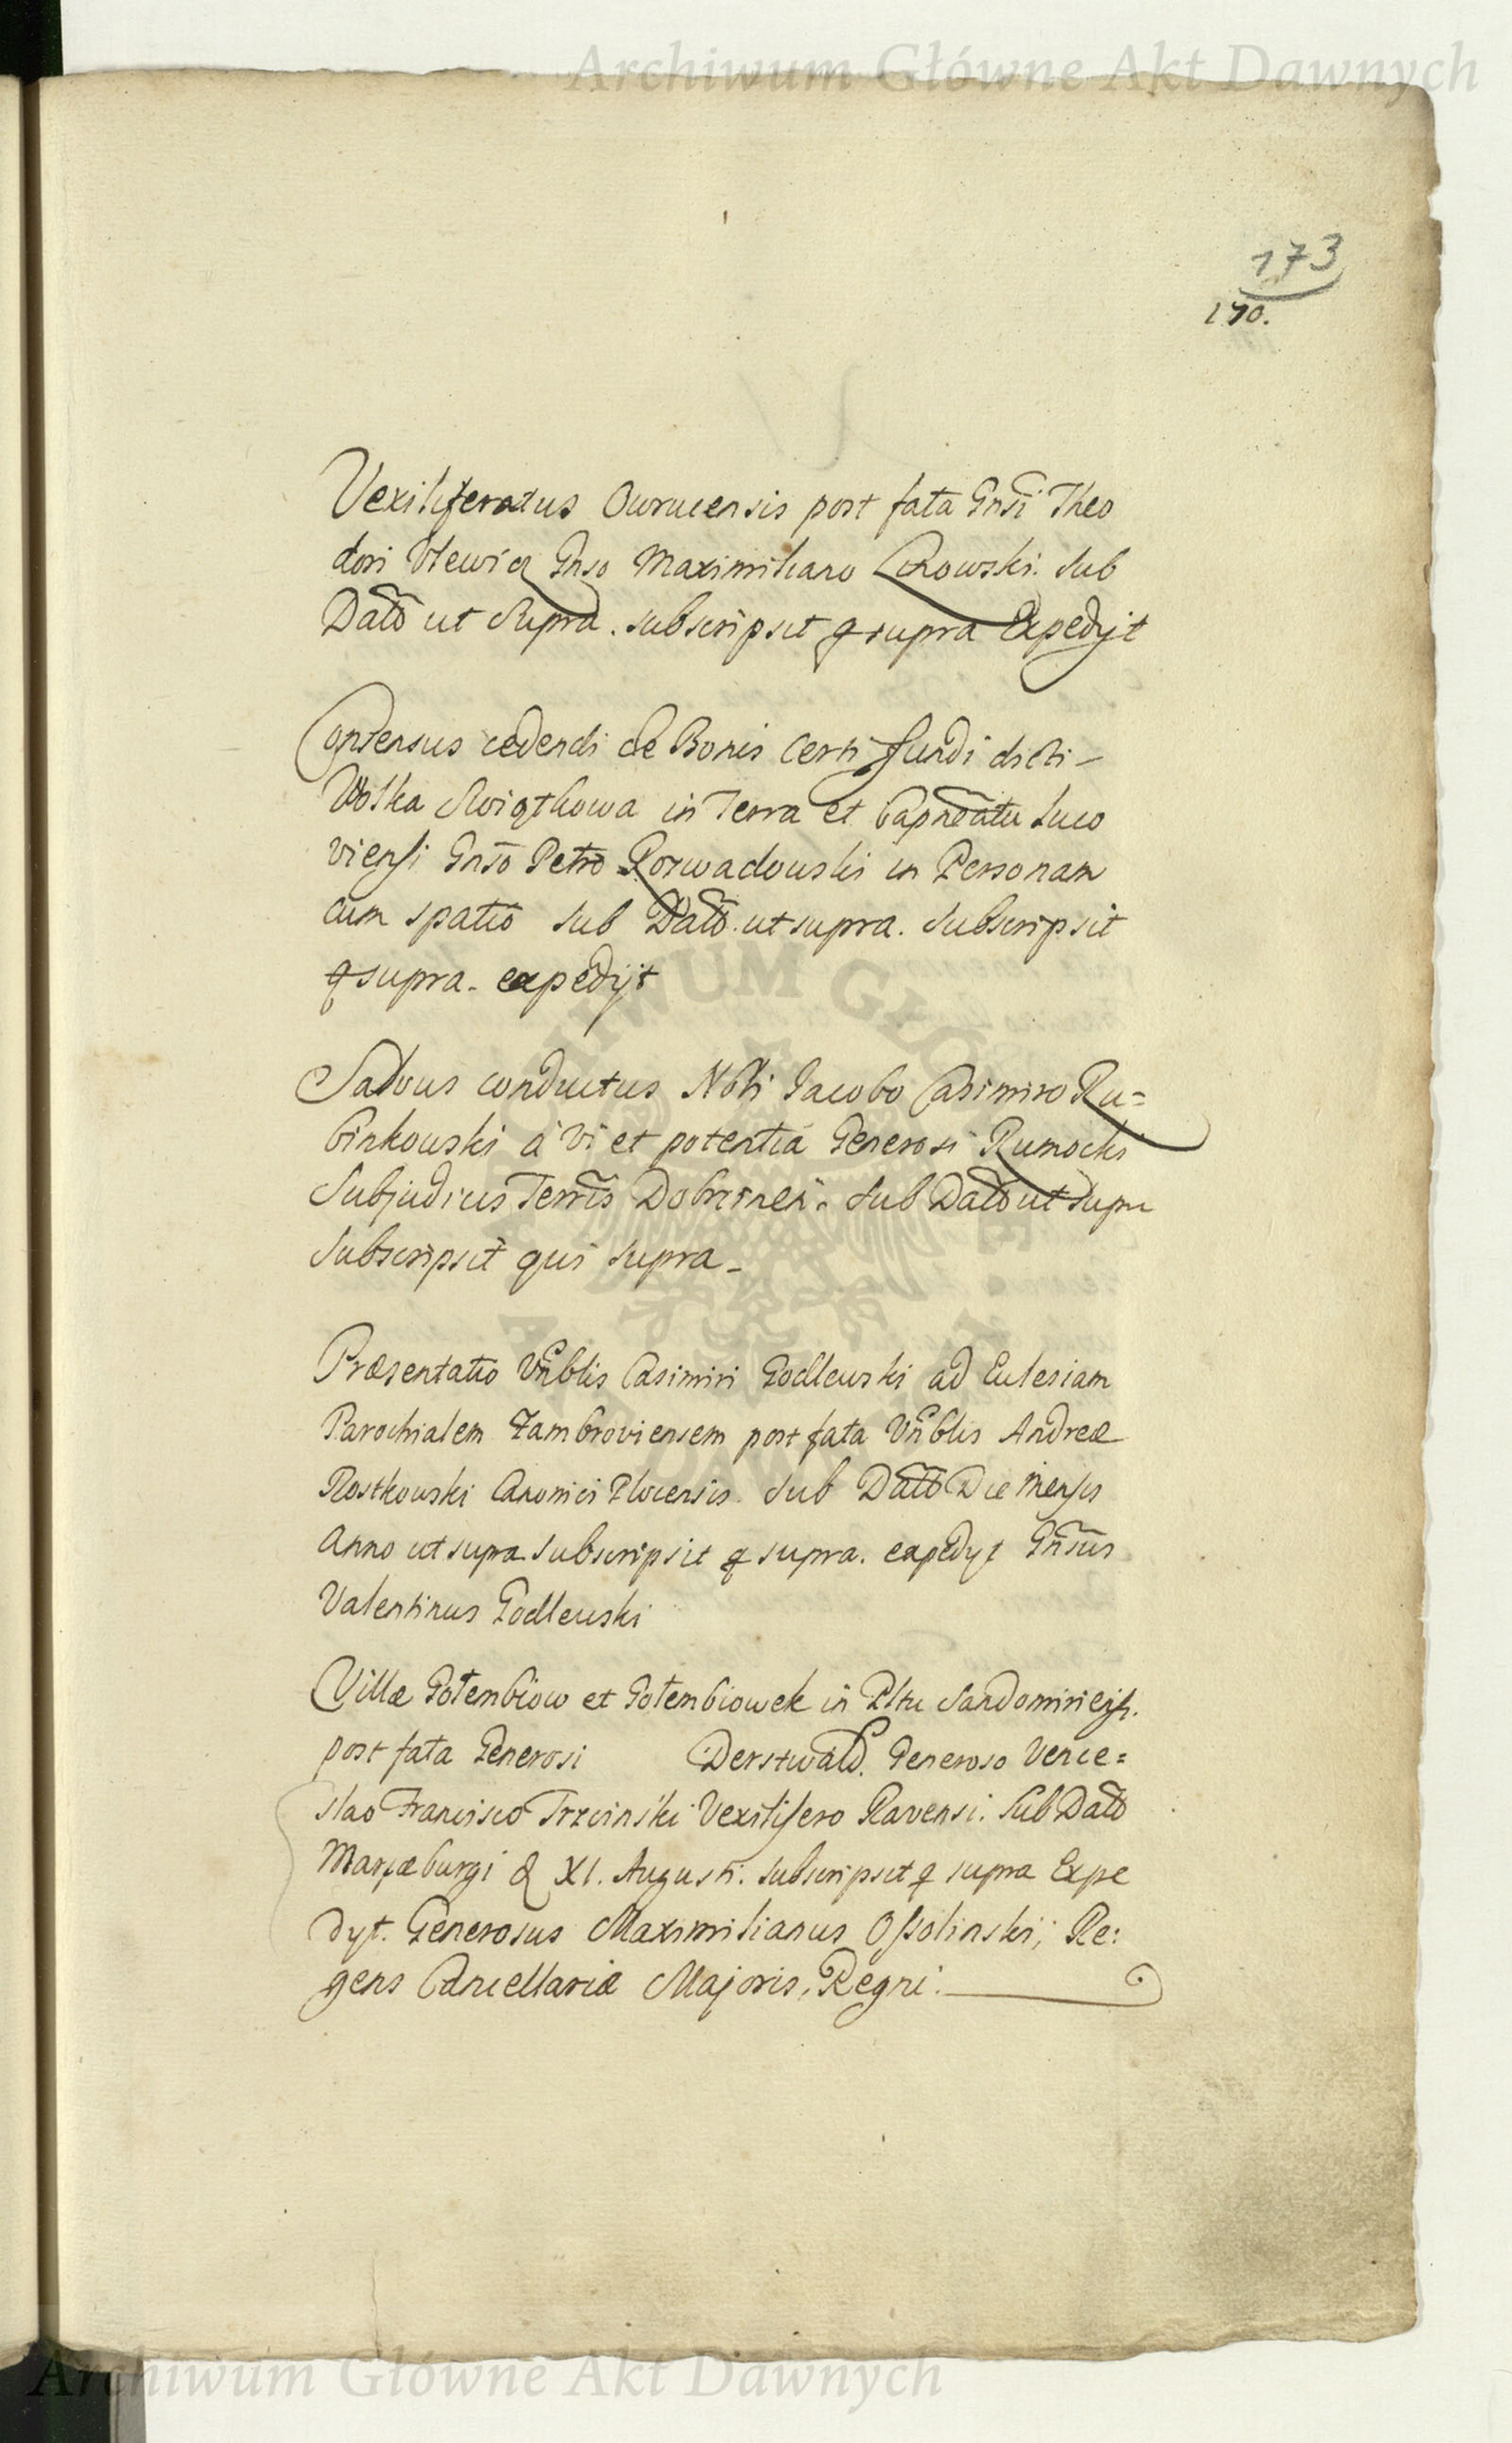 Archiwum Główne Akt Dawnych
173
170.
Vexiliferatus Owrucensis post fata Gnsi Theo
dori Gnso Maximiliano sub
Dato ut supra. subscripsit q supra Expedijt
Consensus cedendi de Bonis certi fundi dicti
Wolka Swiątkowa in Terra et Capneatu Luco
viensi Gnso Petro Rozwadowski in Personam
cum spatio sub Dato ut supra. subscripsit
q supra. expedijt
Salvus conductus Nobi Jacobo Casimiro Ru=
binkowski à vi et potentia Generosi Rumocki
Subjudicis Terris Dobrinen. sub Dato ut supra
subscripsit qui supra
Præsentatio Vnblis Casimiri Godlewski ad Eclesiam
Parochialem Zambroviensem post fata Vnblis Andreæ
Rostkowski Canonici Plocensis. sub Dato Die Mensis
Anno ut supra subscripsit q supra. expedyt Gnsus
Valentinus Godlewski
Villæ Gotembiow et Gotembiowek in Pltu Sandomiriensi.
post fata Generosi Derstwald. Generoso Vence=
slao Francisco Trzcinski Vexilifero Ravensi. Sub Dato
Mariæburgi d XI. Augusti. subscripsit q supra Expe
dyt. Generosus Maximilianus Ossolinski, Re:
gens Cancellariæ Majoris, Regni.
Archiwum Główne Akt Dawnych